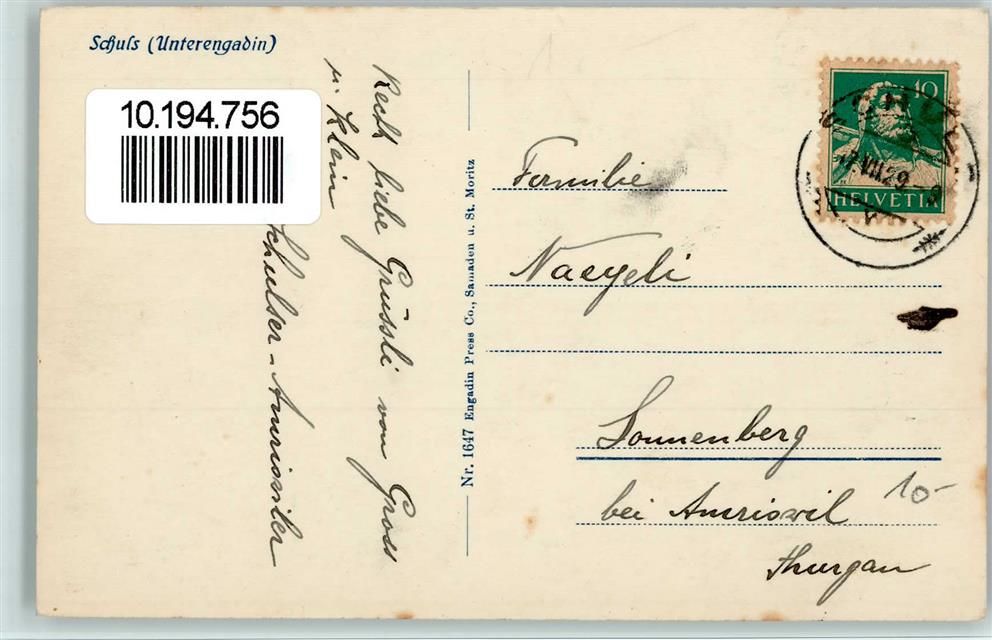 Schuls (Unterengadin)
10.194.756
Recht liebe Grüssli von Gross
u. Klein
Schulser-Amriswiler
Nr. 1647 Engadin Press Co., Samaden u. St. Moritz
10
HELVETIA
VIII 29
Familie
Naegeli
Sonnenberg
bei Amriswil
Thurgau
10-